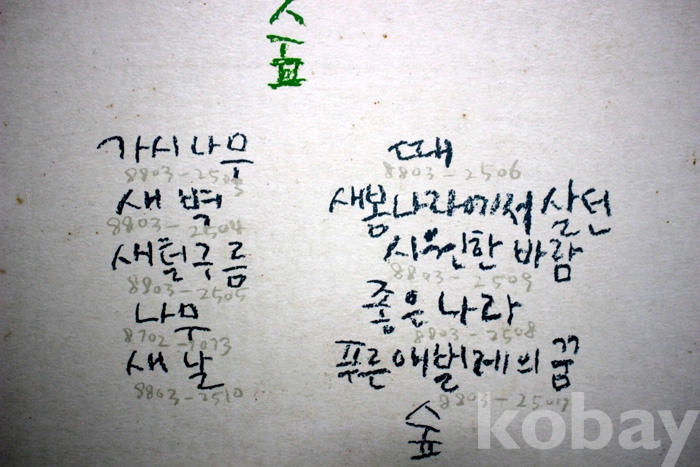 숲
가시나무
8803-2503
새벽
8803-2504
새털구름
8803-2505
나무
8702-7073
새날
8803-2510
때
8803-2506
새봄나라에서 살던
시원한 바람
8803-2509
좋은 나라
8803-2508
푸른 애벌레의 꿈
8803-2507
숲
kobay